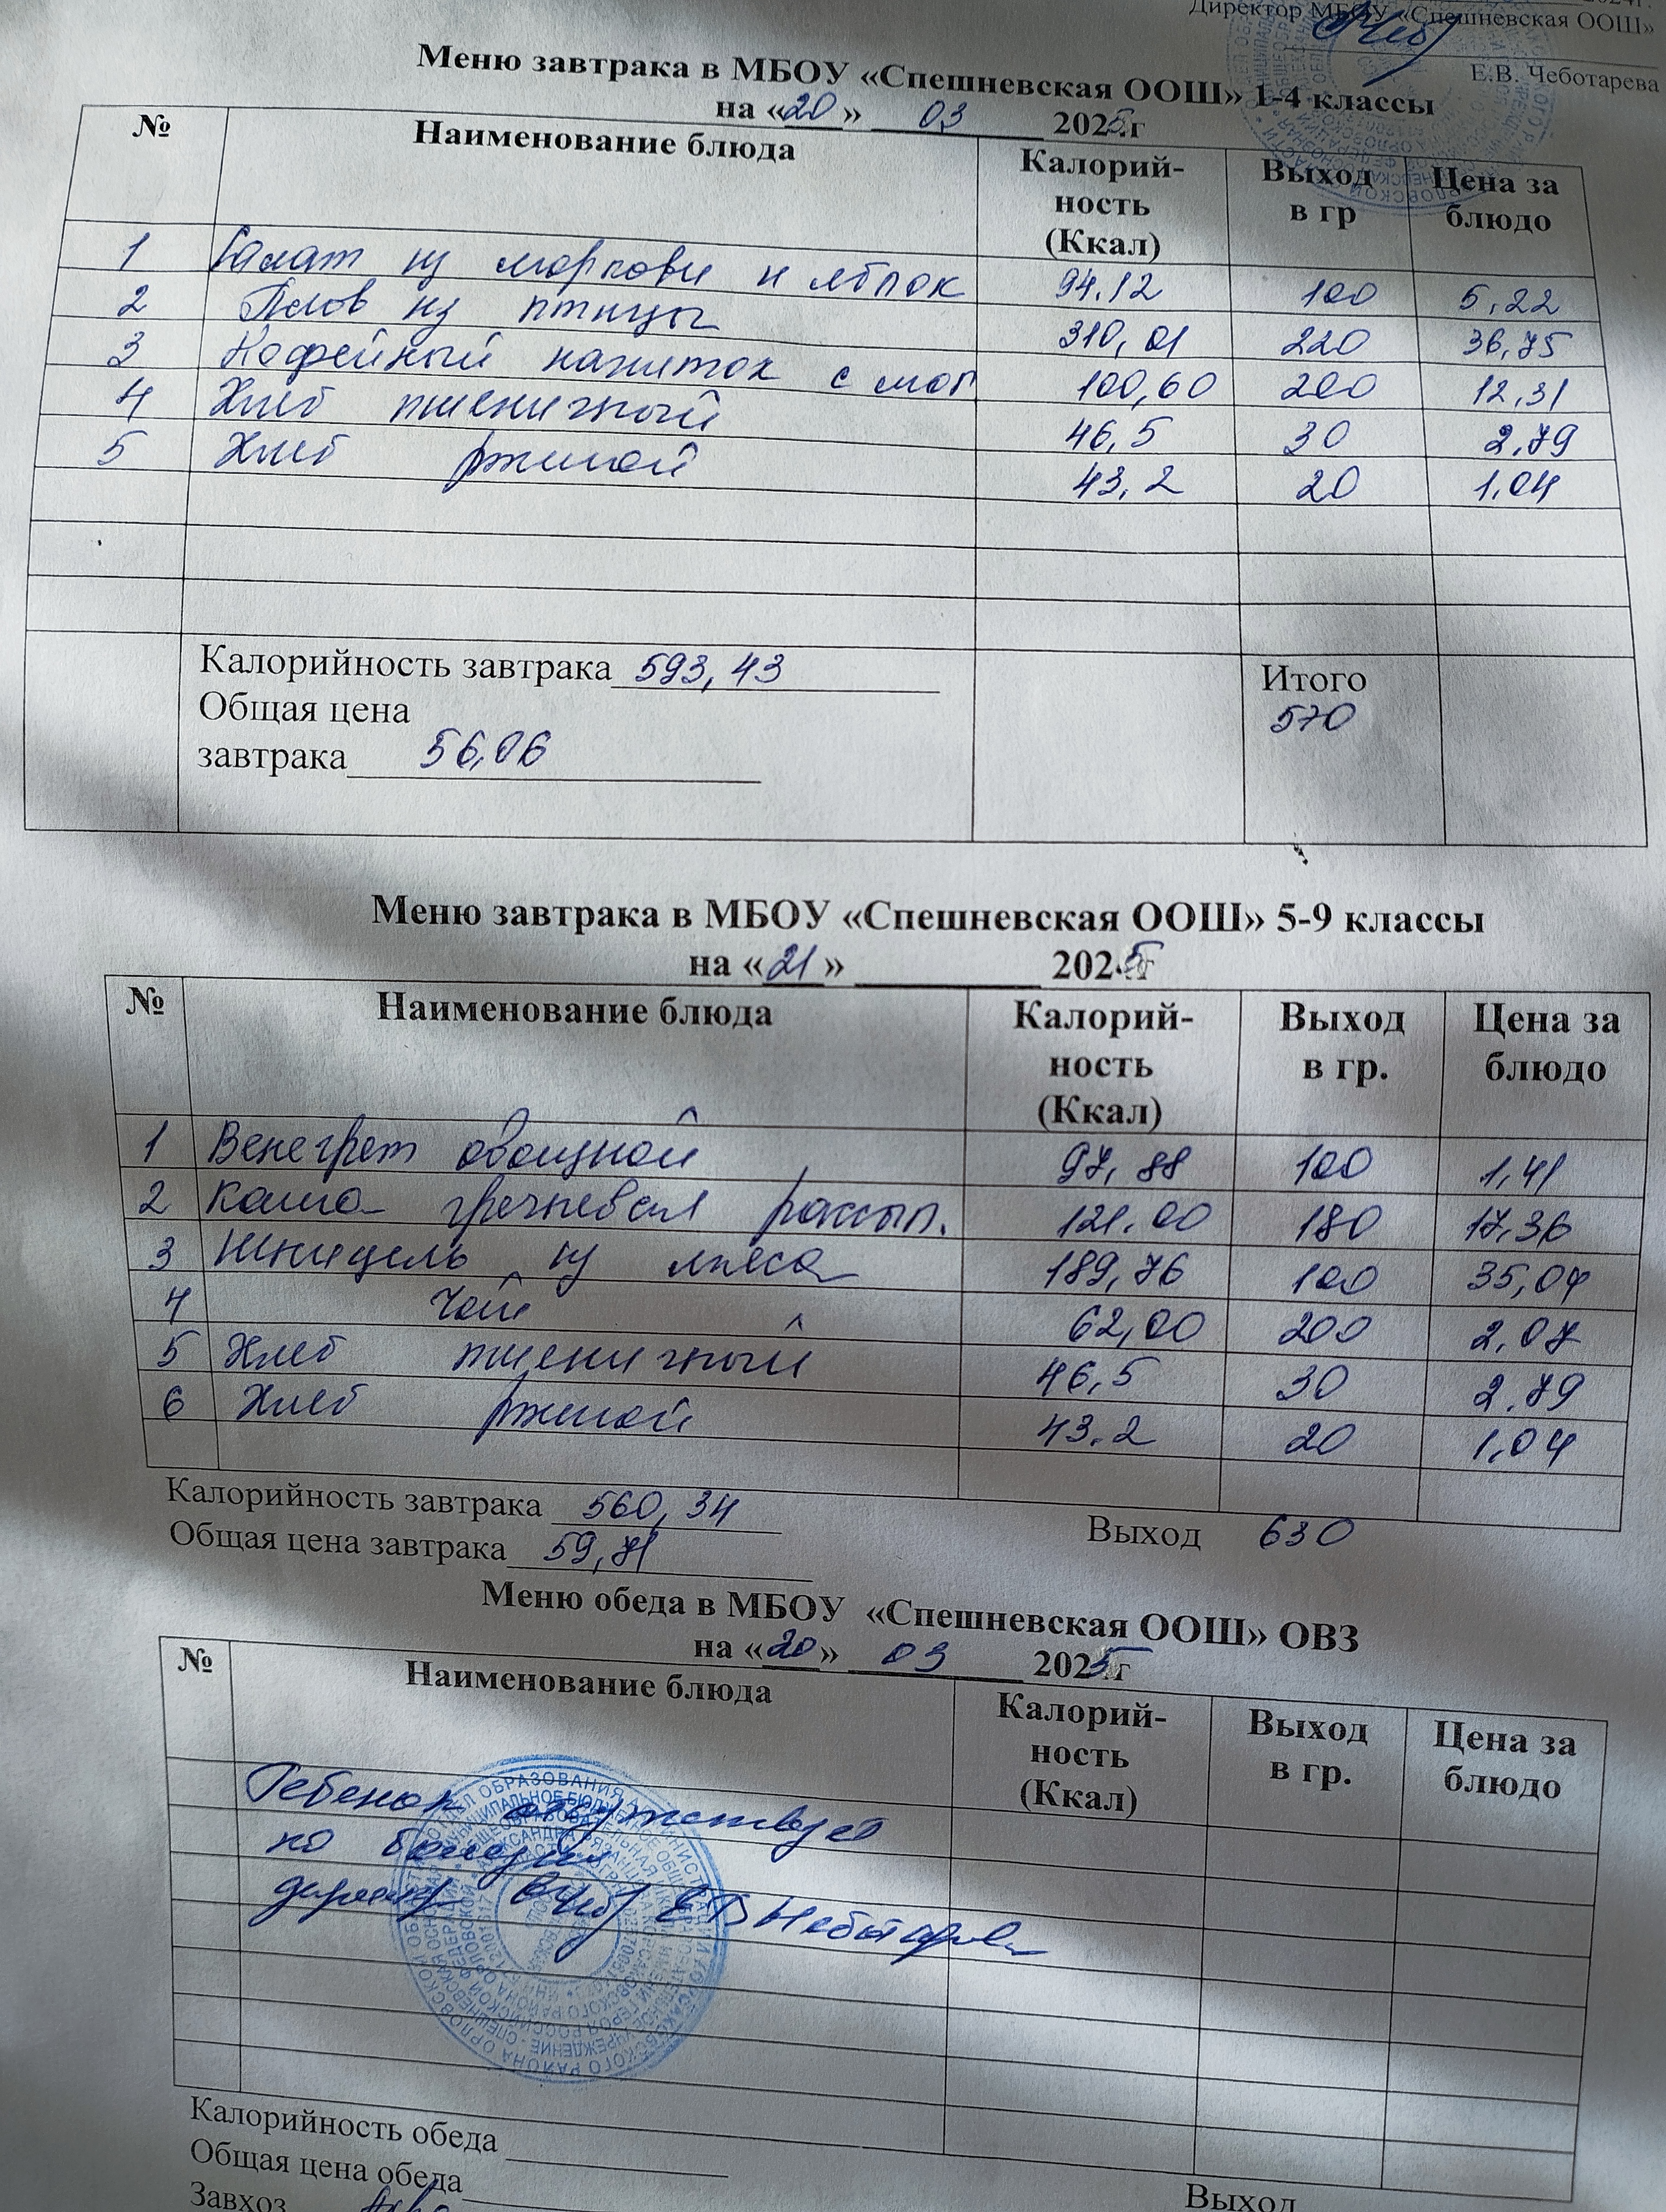 Директор МБОУ «Спешневская ООШ»
Е.В. Чеботарева
Меню завтрака в МБОУ «Спешневская ООШ» 1-4 классы
на «20» 03 2025г
№ Наименование блюда Калорий-ность (Ккал) Выход в гр Цена за блюдо
1 Салат из моркови и яблок 94.12 100 5,22
2 Плов из птицы 310,01 220 36,75
3 Кофейный напиток с мол 100,60 200 12,31
4 Хлеб пшеничный 46,5 30 2,79
5 Хлеб ржаной 43,2 20 1,04
Калорийность завтрака 593,43
Итого
Общая цена
570
завтрака 56,06
Меню завтрака в МБОУ «Спешневская ООШ» 5-9 классы
на «21» 2025г
№ Наименование блюда Калорий-ность (Ккал) Выход в гр. Цена за блюдо
1 Венегрет овощной 97,88 100 1,41
2 Каша гречневая рассып. 121.00 180 17,36
3 Шницель из мяса 189,76 100 35,04
4 Чай 62,00 200 2,07
5 Хлеб пшеничный 46,5 30 2,79
6 Хлеб ржаной 43.2 20 1,04
Калорийность завтрака 560,34
Выход 630
Общая цена завтрака 59,71
Меню обеда в МБОУ «Спешневская ООШ» ОВЗ
на «20» 03 2025г
№ Наименование блюда Калорий-ность (Ккал) Выход в гр. Цена за блюдо
Ребенок отсутствует
по болезни
директор ЕВ Чеботарева
Калорийность обеда
Общая цена обеда
Выход
Завхоз